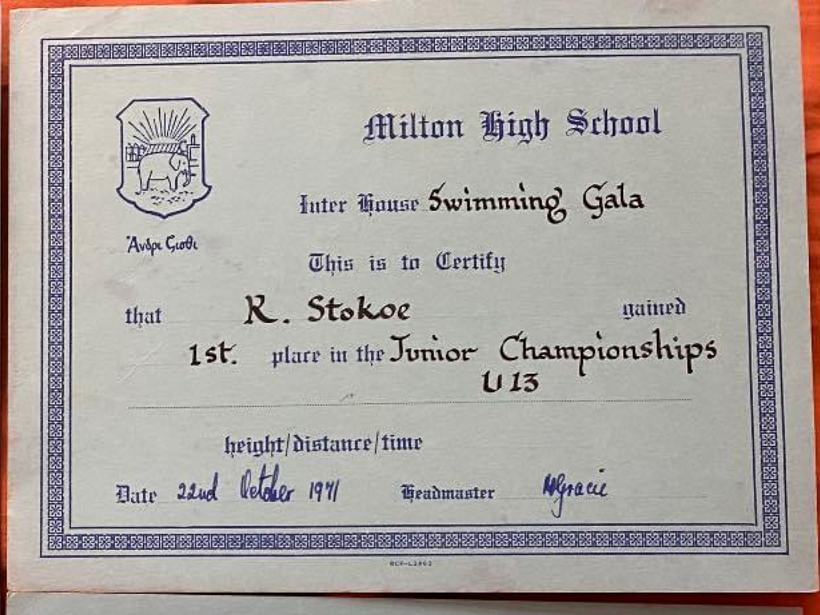 Milton High School
Inter House Swimming Gala
Ἄνδρι Ϛισθι
This is to Certify
that R. Stokoe gained
1st. place in the Junior Championships
U13
height/distance/time
Date 22nd October 1971 Headmaster HGracie